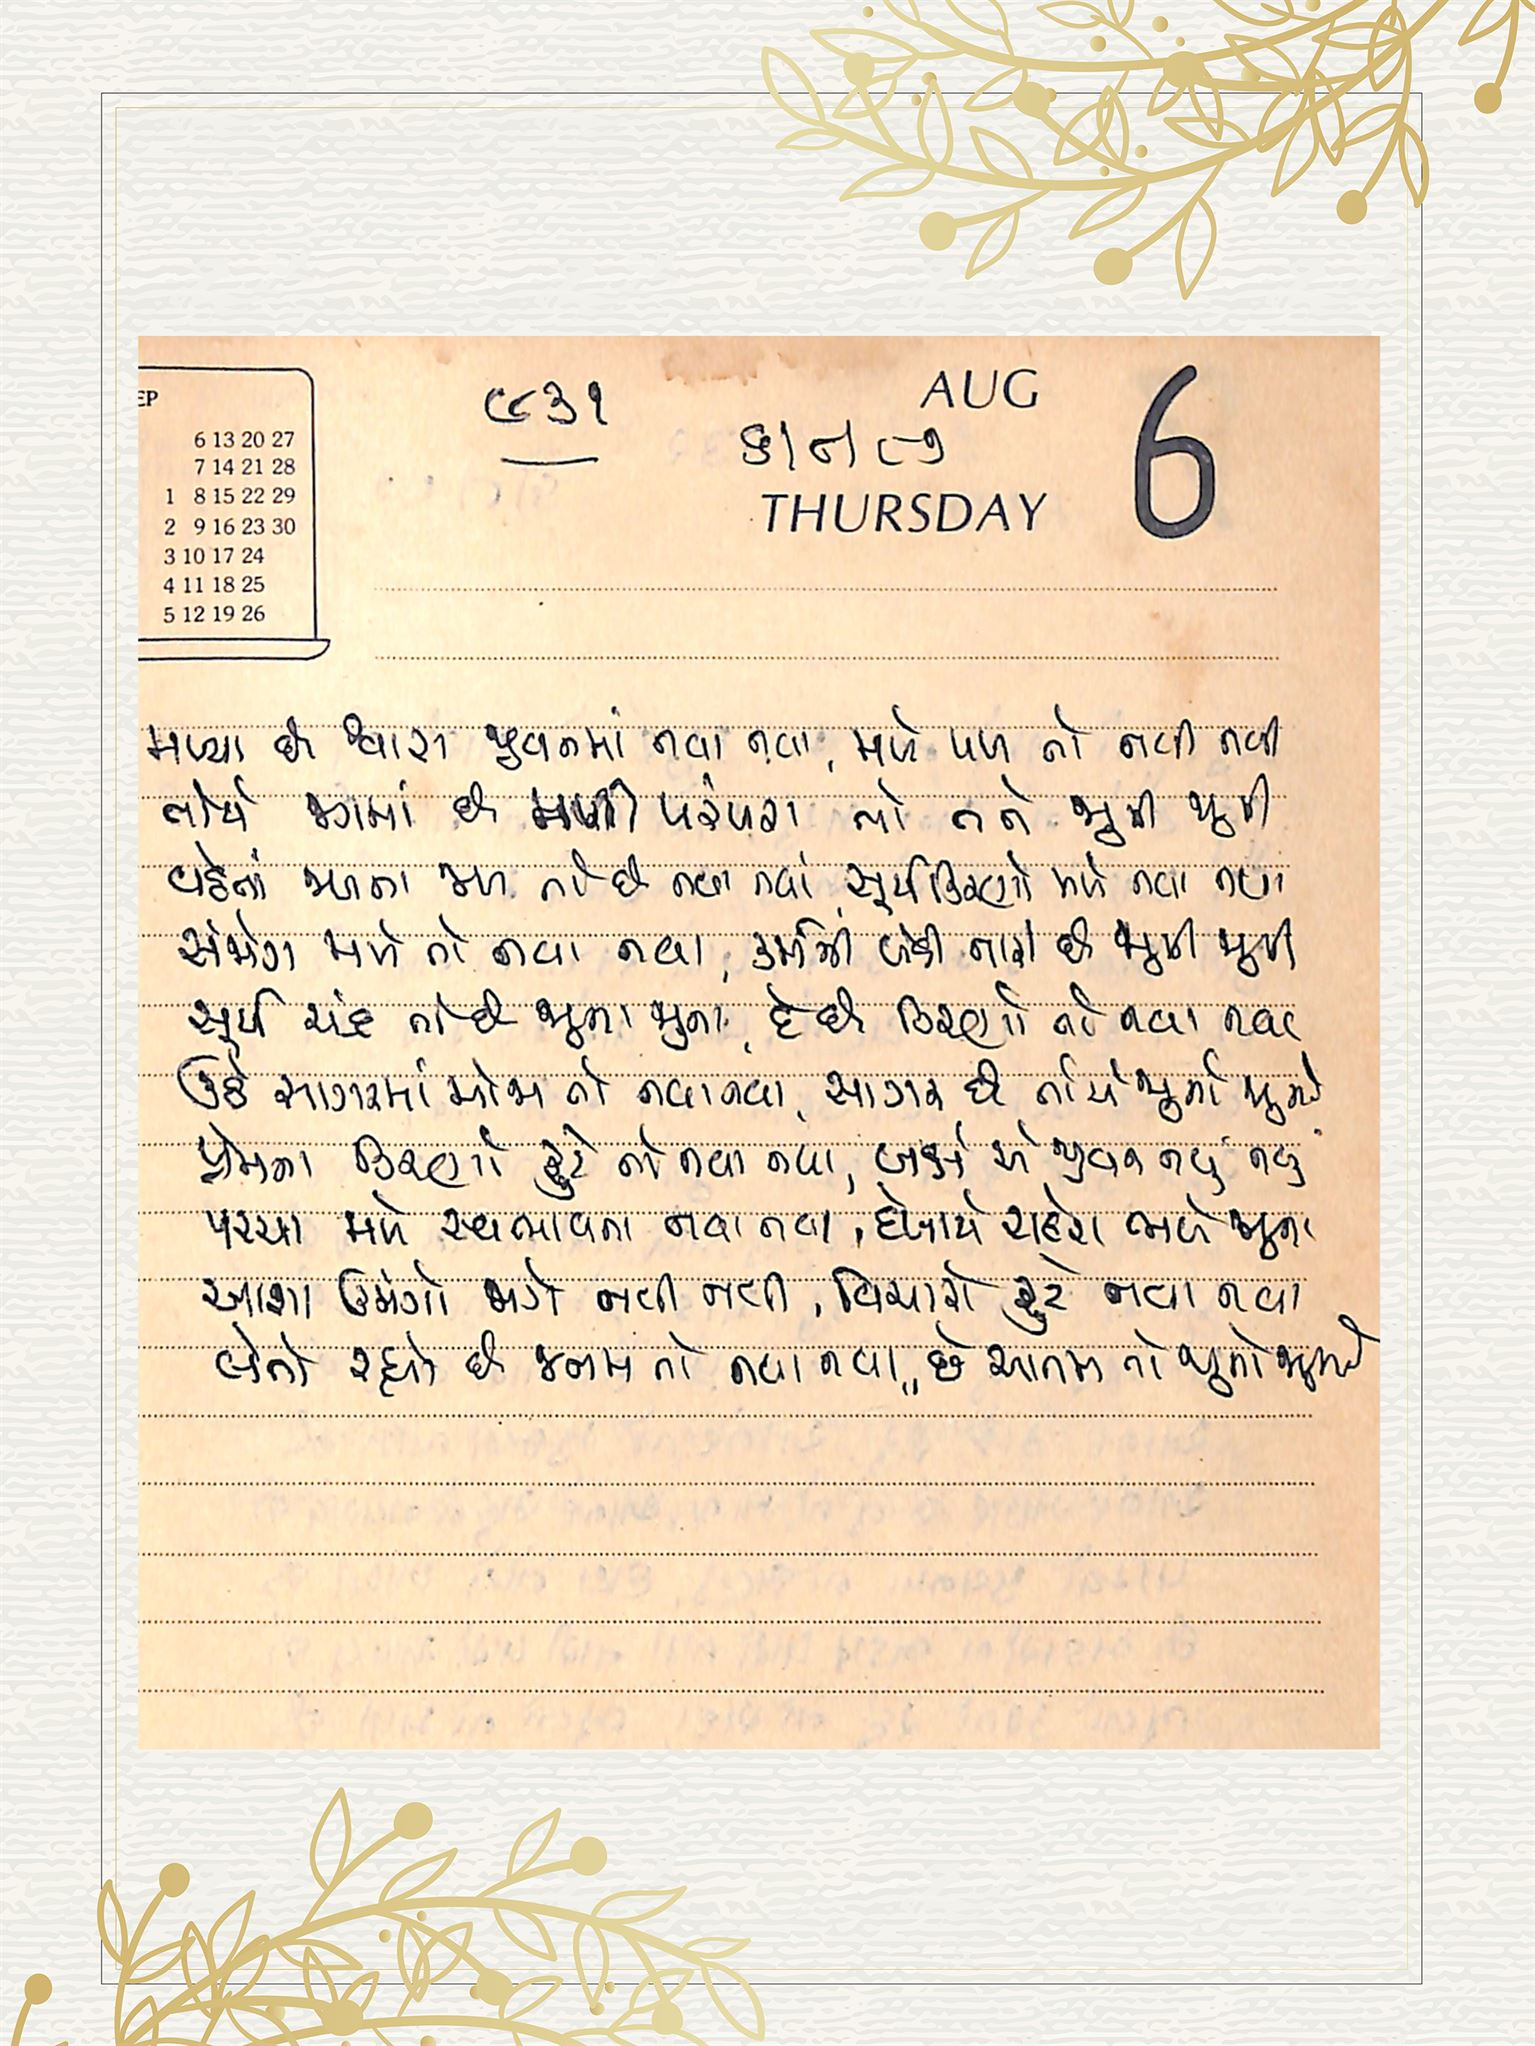 EP
૯૮૩૧
AUG
6
THURSDAY
6 13 20 27
7 14 21 28
1 8 15 22 29
2 9 16 23 30
3 10 17 24
4 11 18 25
5 12 19 26
મળ્યા છે જીવનમાં નવા નવા, મળે પળ તો નવી નવી
તોયે જગમાં છે પરંપરા તો જૂની જૂની
વહેતાં જળના જળ તો છે નવા નવા, સૂર્યકિરણો મળે નવા નવા
સંજોગ મળે તો નવા નવા, જૂની જૂની
સૂર્ય ચંદ્ર તો છે જુના જુના, દે છે કિરણો તો નવા નવા
ઊઠે સાગરમાં મોજા તો નવા નવા, સાગર છે તોયે જુનો જુનો
પ્રેમના કિરણો ફુટે તો નવા નવા, બક્ષે એ જીવન નવું નવું
પરચા મળે સ્વભાવના નવા નવા, દેખાયે ચહેરા ભળે જુના
આશા ઉમંગો જાગે નવી નવી, વિચારો ફુટે નવા નવા
લેતો રહ્યો છે જનમ તો નવા નવા, છે આતમ તો જુનો જુનો